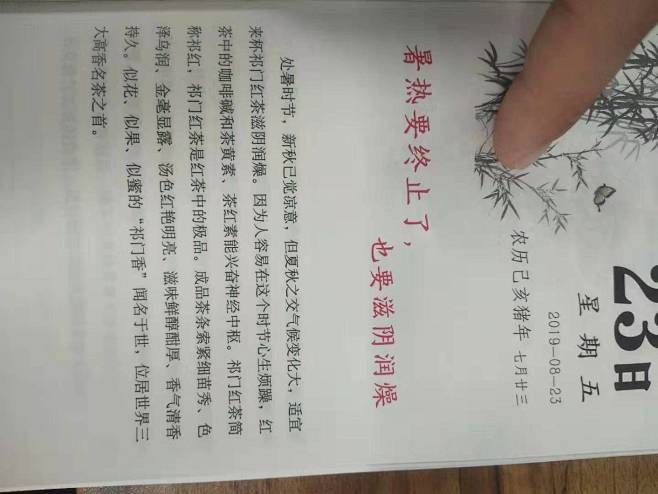 23日
星期五
2019-08-23
农历己亥猪年 七月廿三
暑热要终止了，
也要滋阴润燥
处暑时节，新秋已觉凉意，但夏秋之交气候变化大，适宜
来杯祁门红茶滋阴润燥。因为人容易在这个时节心生烦躁，红
茶中的咖啡碱和茶黄素、茶红素能兴奋神经中枢。祁门红茶简
称祁红，祁门红茶是红茶中的极品。成品茶条索紧细苗秀、色
泽乌润、金毫显露、汤色红艳明亮、滋味鲜醇酣厚、香气清香
持久。似花、似果、似蜜的“祁门香”闻名于世，位居世界三
大高香名茶之首。